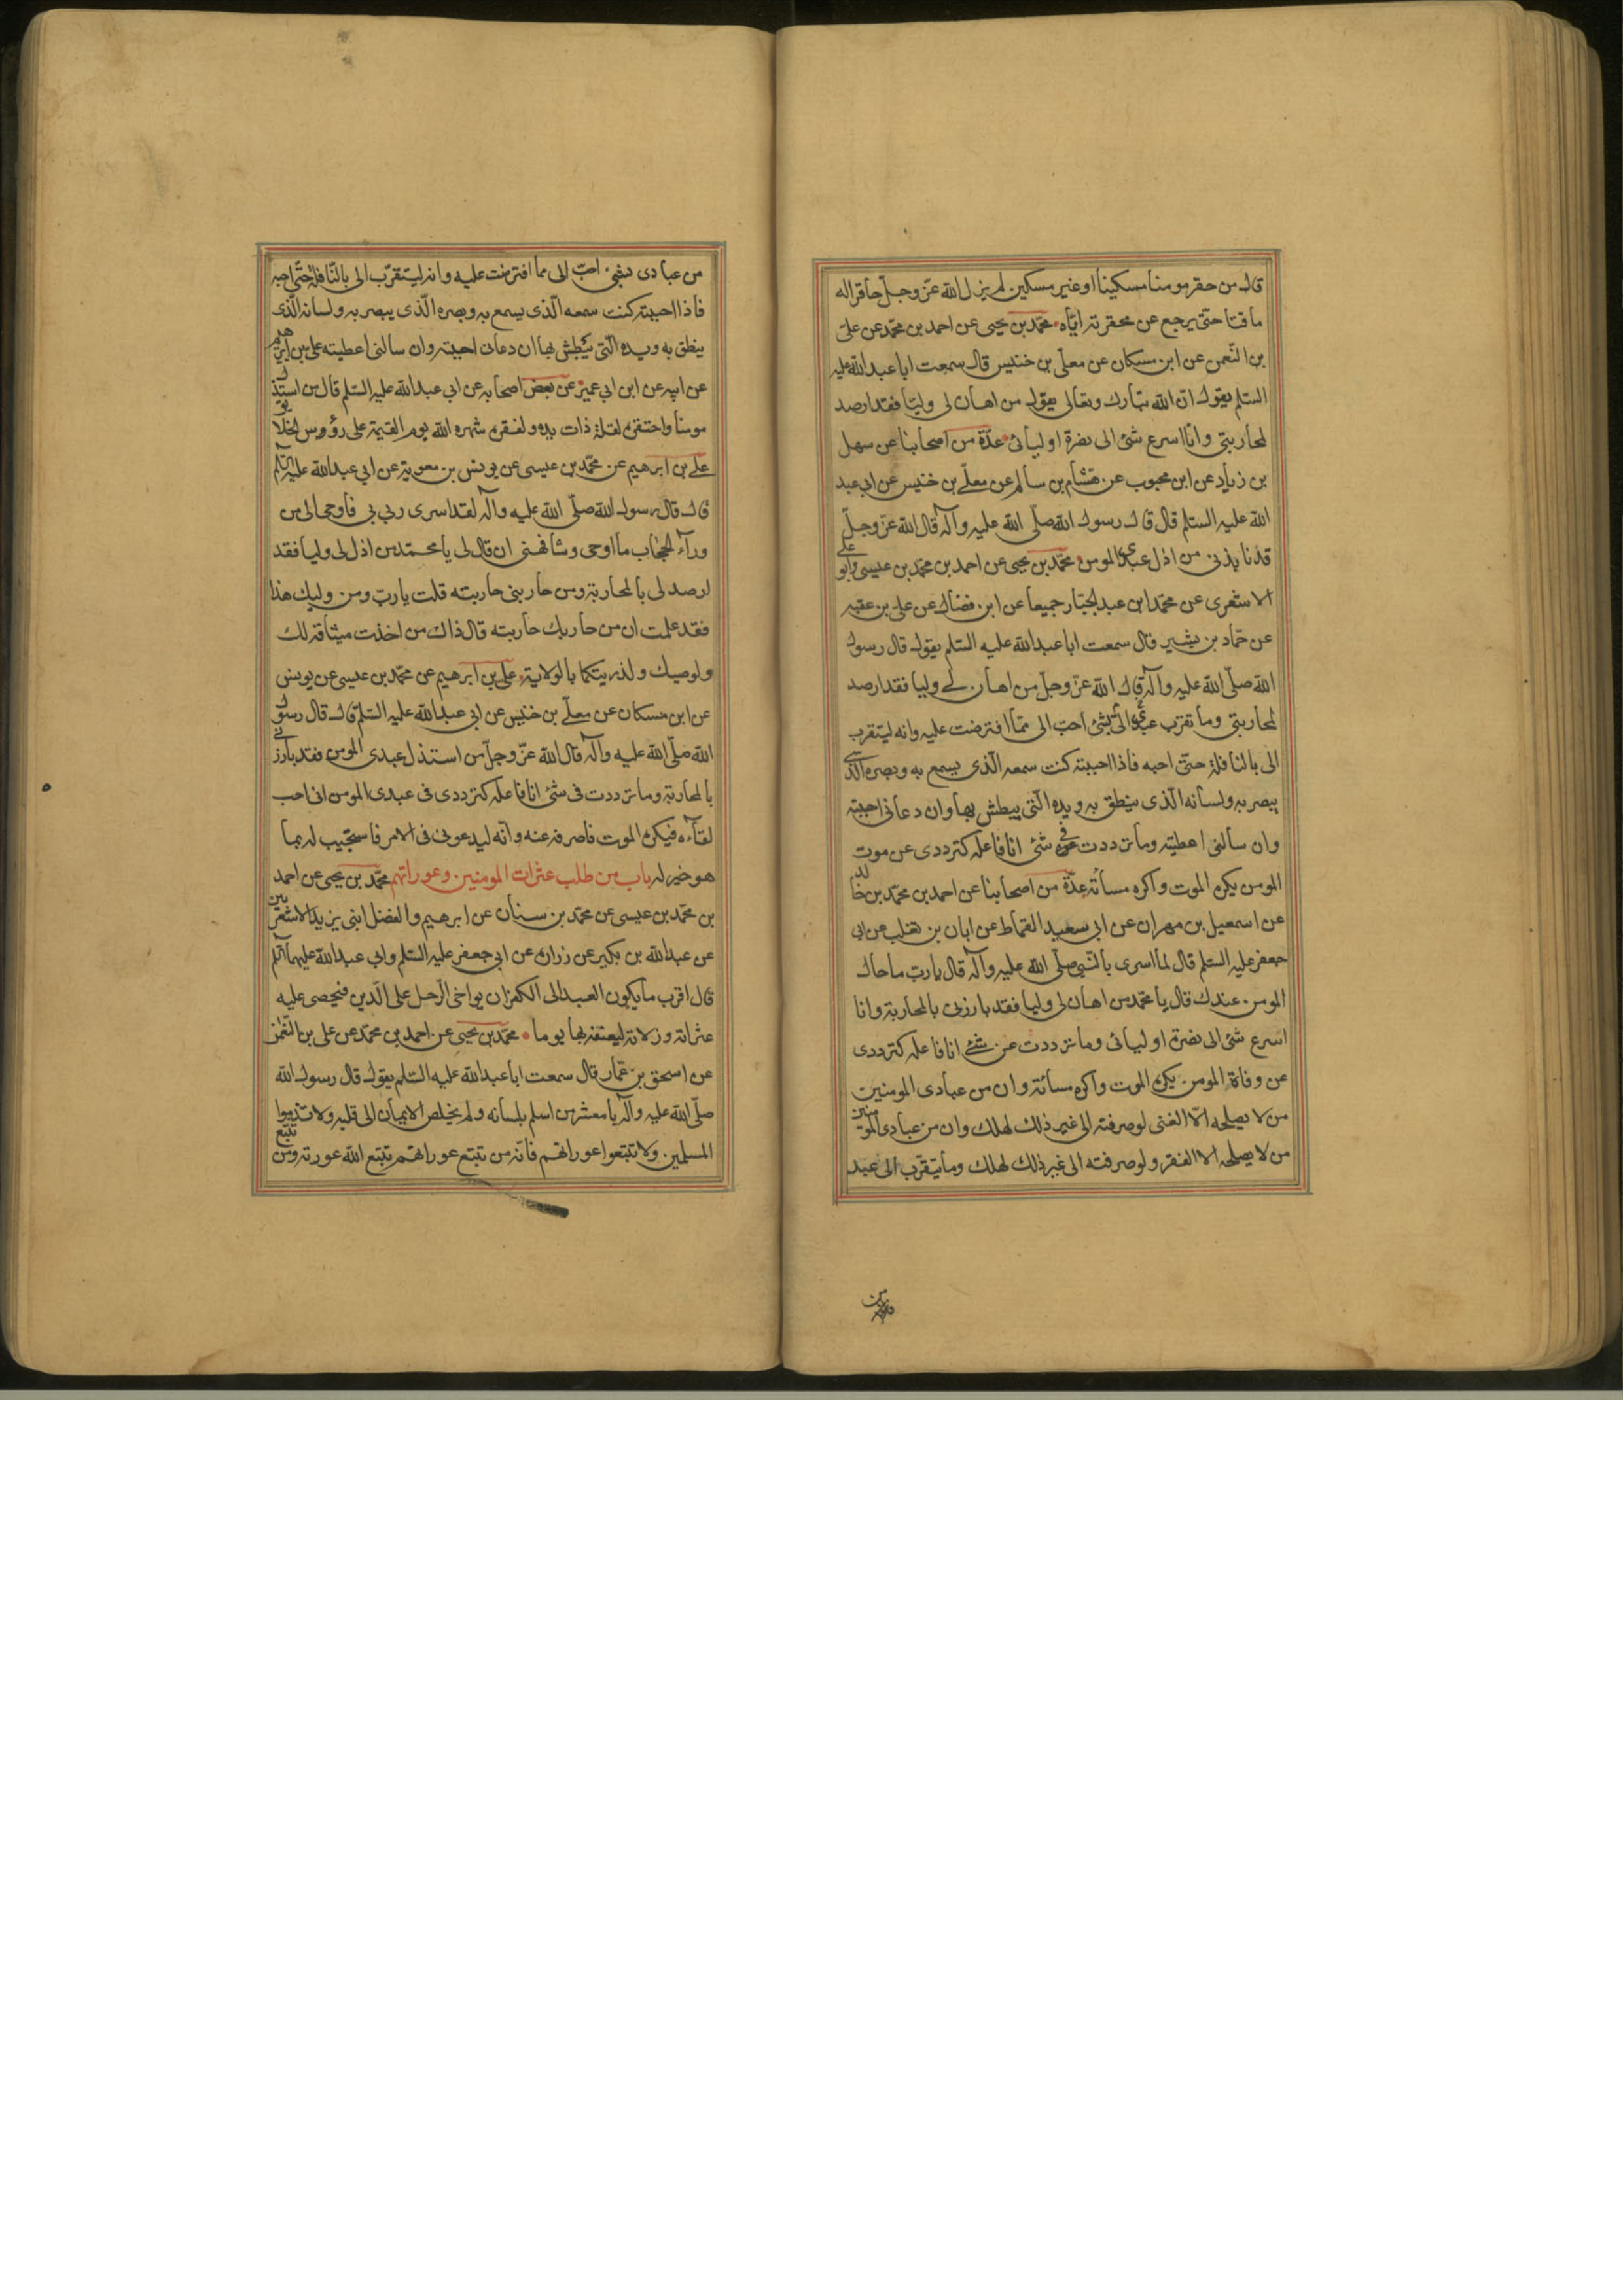 قال من حقر مومنا مسكينا او غير مسكين لم يزل الله عزّ وجلّ حاقرا له
ماقتا حتّى يرجع عن محقرته ايّاه محمّد بن يحيى عن احمد بن محمّد عن علىّ
بن النّعمن عن ابن مسكان عن معلّى بن خنيس قال سمعت ابا عبد الله عليه
السّلم يقول انّ الله تبارك وتعالى يقول من اهان لى وليّا فقد ارصد
لمحاربتى وانا اسرع شئ الى نصرة اوليائى عدّة من اصحابنا عن سهل
بن زياد عن ابن محبوب عن هشام بن سالم عن معلّى بن خنيس عن ابى عبد
الله عليه السّلم قال قال رسول الله صلّى الله عليه وآله قال الله عزّ وجلّ
قد نابذنى من اذل عبدى المومن محمّد بن يحيى عن احمد بن محمّد بن عيسى وابو على
الاشعرى عن محمّد ابن عبد الجبّار جميعا عن ابن فضال عن على بن عقبه
عن حمّاد بن بشير قال سمعت ابا عبد الله عليه السّلم يقول قال رسول
الله صلّى الله عليه وآله قال الله عزّ وجلّ من اهان لى وليا فقد ارصد
لمحاربتى وما تقرب عبدى الىّ بشئ احبّ الى ممّا افترضت عليه وانه ليتقرب
الى بالنافلة حتّى احبه فاذا احببته كنت سمعه الّذى يسمع به وبصره الّذى
يبصر به ولسانه الّذى ينطق به ويده الّتى يبطش بها وان دعانى اجبته
وان سألنى اعطيته وما ترددت فى شئى انا فاعله كترددى عن موت
المومن يكره الموت واكره مسأته عدّة من اصحابنا عن احمد بن محمّد بن خالد
عن اسمعيل بن مهران عن ابى سعيد القماط عن ابان بن تغلب عن ابى
جعفر عليه السّلم قال لما اسرى بالنّبى صلّى الله عليه وآله قال يا ربّ ما حال
المومن عندك قال يا محمّد من اهان لى وليا فقد بارزنى بالمحاربة وانا
اسرع شئى الى نصرة اوليائى وما ترددت عن شئى انا فاعله كترددى
عن وفاة المومن يكره الموت واكره مسائته وان من عبادى المومنين
من لا يصلحه الّا الغنى لو صرفته الى غير ذلك لهلك وان من عبادى المومنين
من لا يصلحه الا الفقر ولو صرفته الى غير ذلك لهلك وما يتقرّب الى عبد
من عبادى بشئ احبّ الى مما افترضت عليه وانه ليتقرّب الى بالنّافلة حتّى احبه
فاذا احببته كنت سمعه الّذى يسمع به وبصره الّذى يبصر به ولسانه الّذى
ينطق به ويده الّتى يبطش بها ان دعانى اجبته وان سالنى اعطيته على بن ابرهيم
عن ابيه عن ابن ابى عمير عن بعض اصحابه عن ابى عبد الله عليه السّلم قال من استذل
مومنا واحتقره لقلة ذات يده ولفقره شهره الله يوم القيمة على رؤوس الخلايق
علىّ بن ابرهيم عن محمّد بن عيسى عن يونس بن معوية عن ابى عبد الله عليه السّلم
قال قال رسول الله صلّى الله عليه وآله لقد اسرى ربى بى فاوحى الى من
ورآء الحجاب ما اوحى وشافهنى ان قال لى يا محمّد من اذل لى وليا فقد
ارصد لى بالمحاربة ومن حاربنى حاربته قلت يا ربّ ومن وليك هذا
فقد علمت ان من حاربك حاربته قال ذاك من اخذت ميثاقه لك
ولوصيك ولذريتكما بالولاية على بن ابرهيم عن محمّد بن عيسى عن يونس
عن ابن مسكان عن معلّى بن خنيس عن ابى عبد الله عليه السّلم قال قال رسول
الله صلّى الله عليه وآله قال الله عزّ وجلّ من استذل عبدى المومن فقد بارزنى
بالمحاربة وما ترددت فى شئ انا فاعله كترددى فى عبدى المومن انى احب
لقآءه فيكره الموت فاصرفه عنه وانّه ليدعونى فى الامر فاستجيب له بما
هو خير له باب من طلب عثرات المومنين وعوراتهم محمّد بن يحيى عن احمد
بن محمّد بن عيسى عن محمّد بن سنان عن ابرهيم والفضل ابنى يزيد الاشعريين
عن عبد الله بن بكير عن زرارة عن ابى جعفر عليه السّلم وابى عبد الله عليهما السّلم
قال اقرب ما يكون العبد الى الكفر ان يواخى الرّجل على الدّين فيحصى عليه
عثراته وزلاته ليعنّفه بها يوما محمّد بن يحيى عن احمد بن محمّد عن على بن النّعمن
عن اسحق بن عمّار قال سمعت ابا عبد الله عليه السّلم يقول قال رسول الله
صلّى الله عليه وآله يا معشر من اسلم بلسانه ولم يخلص الايمان الى قلبه ولا تذموا
المسلمين ولا تتبّعوا عوراتهم فانّه من تتبّع عوراتهم تتبّع الله عورته ومن تتبّع